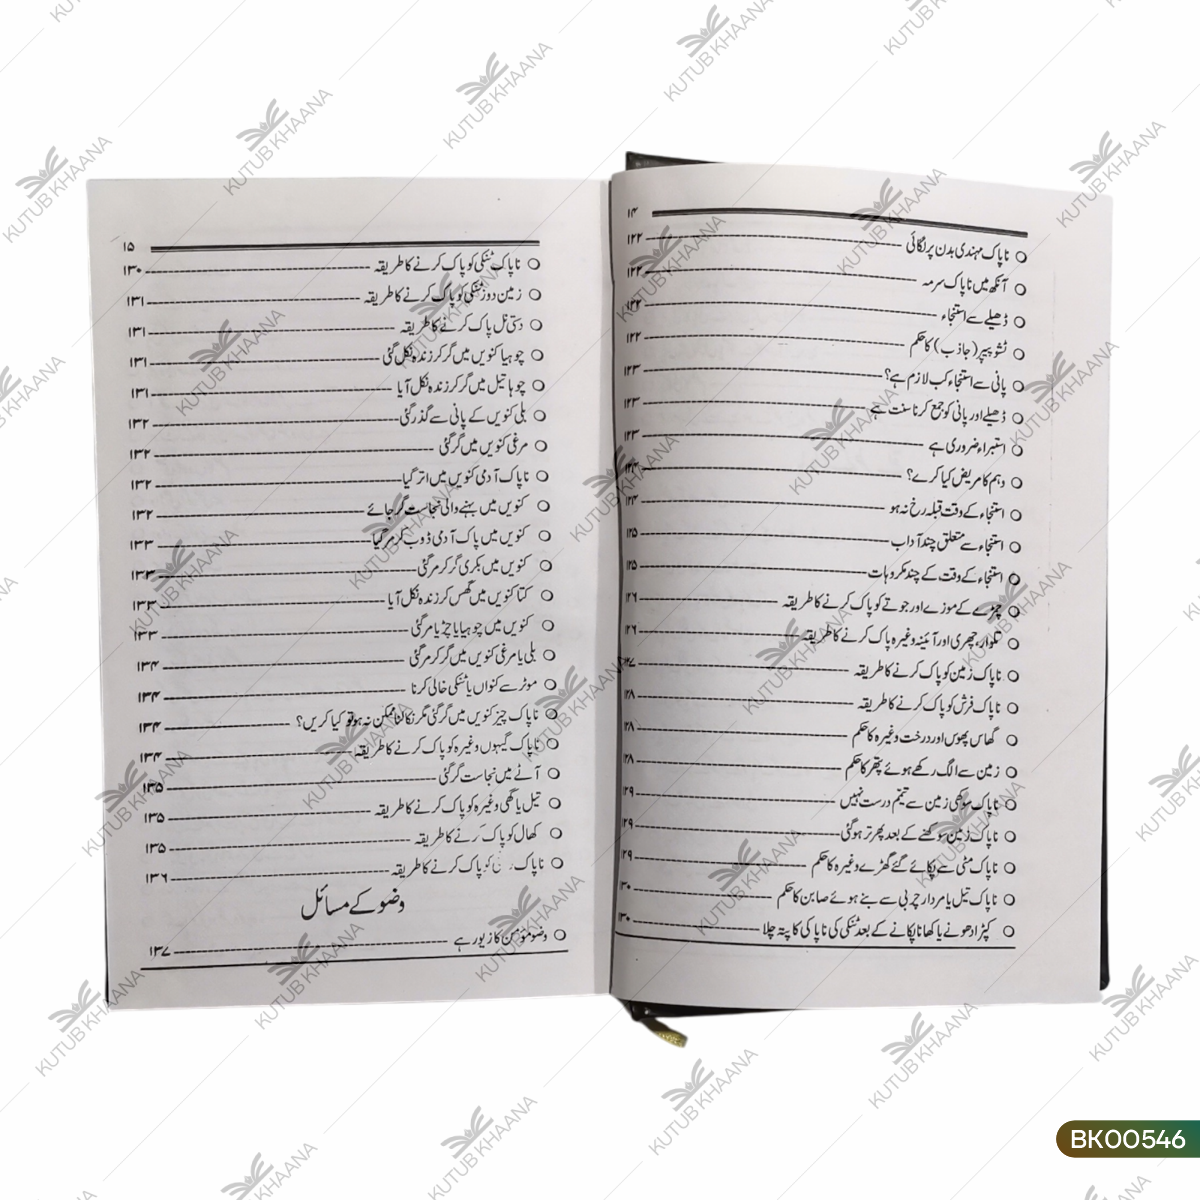 ۱۴
ناپاک مہندی بدن پر لگائی ۱۲۲
آنکھ میں ناپاک سرمہ ۱۲۲
ڈھیلے سے استنجاء ۱۲۲
ٹشو پیپر (جاذب) کا حکم ۱۲۲
پانی سے استنجاء کب لازم ہے؟ ۱۲۳
ڈھیلے اور پانی کو جمع کرنا سنت ہے ۱۲۳
استبراء ضروری ہے ۱۲۳
وہم کا مریض کیا کرے؟ ۱۲۴
استنجاء کے وقت قبلہ رخ نہ ہو ۱۲۴
استنجاء سے متعلق چند آداب ۱۲۵
استنجاء کے وقت کے چند مکروہات ۱۲۵
چمڑے کے موزے اور جوتے کو پاک کرنے کا طریقہ ۱۲۶
تلوار، چھری اور آئینہ وغیرہ پاک کرنے کا طریقہ ۱۲۶
ناپاک زمین کو پاک کرنے کا طریقہ ۱۲۷
ناپاک فرش کو پاک کرنے کا طریقہ ۱۲۸
گھاس پھوس اور درخت وغیرہ کا حکم ۱۲۸
زمین سے الگ رکھے ہوئے پتھر کا حکم ۱۲۸
ناپاک سوکھی زمین سے تیمم درست نہیں ۱۲۹
ناپاک زمین سوکھنے کے بعد پھر تر ہوگئی ۱۲۹
ناپاک مٹی سے پکائے گئے گھڑے وغیرہ کا حکم ۱۲۹
ناپاک تیل یا مردار چربی سے بنے ہوئے صابن کا حکم ۱۳۰
کپڑا دھونے یا کھانا پکانے کے بعد ٹنکی کی ناپاکی کا پتہ چلا ۱۳۰
۱۵
ناپاک ٹنکی کو پاک کرنے کا طریقہ ۱۳۰
زمین دوز ٹنکی کو پاک کرنے کا طریقہ ۱۳۱
دستی نل پاک کرنے کا طریقہ ۱۳۱
چوہیا کنویں میں گر کر زندہ نکل گئی ۱۳۱
چوہا تیل میں گر کر زندہ نکل آیا ۱۳۱
بلی کنویں کے پانی سے گذر گئی ۱۳۲
مرغی کنویں میں گر گئی ۱۳۲
ناپاک آدمی کنویں میں اتر گیا ۱۳۲
کنویں میں بہنے والی نجاست گر جائے ۱۳۲
کنویں میں پاک آدمی ڈوب کر مر گیا ۱۳۳
کنویں میں بکری گر کر مر گئی ۱۳۳
کتا کنویں میں گھس کر زندہ نکل آیا ۱۳۳
کنویں میں چوہیا یا چڑیا مر گئی ۱۳۳
بلی یا مرغی کنویں میں گر کر مر گئی ۱۳۴
موٹر سے کنواں یا ٹنکی خالی کرنا ۱۳۴
ناپاک چیز کنویں میں گر گئی مگر نکالنا ممکن نہ ہو تو کیا کریں؟ ۱۳۴
ناپاک گیہوں وغیرہ کو پاک کرنے کا طریقہ ۱۳۴
آٹے میں نجاست گر گئی ۱۳۵
تیل یا گھی وغیرہ کو پاک کرنے کا طریقہ ۱۳۵
کھال کو پاک کرنے کا طریقہ ۱۳۵
ناپاک کو پاک کرنے کا طریقہ ۱۳۶
وضو کے مسائل
وضو مؤمن کا زیور ہے ۱۳۷
KUTUB KHAANA
BK00546